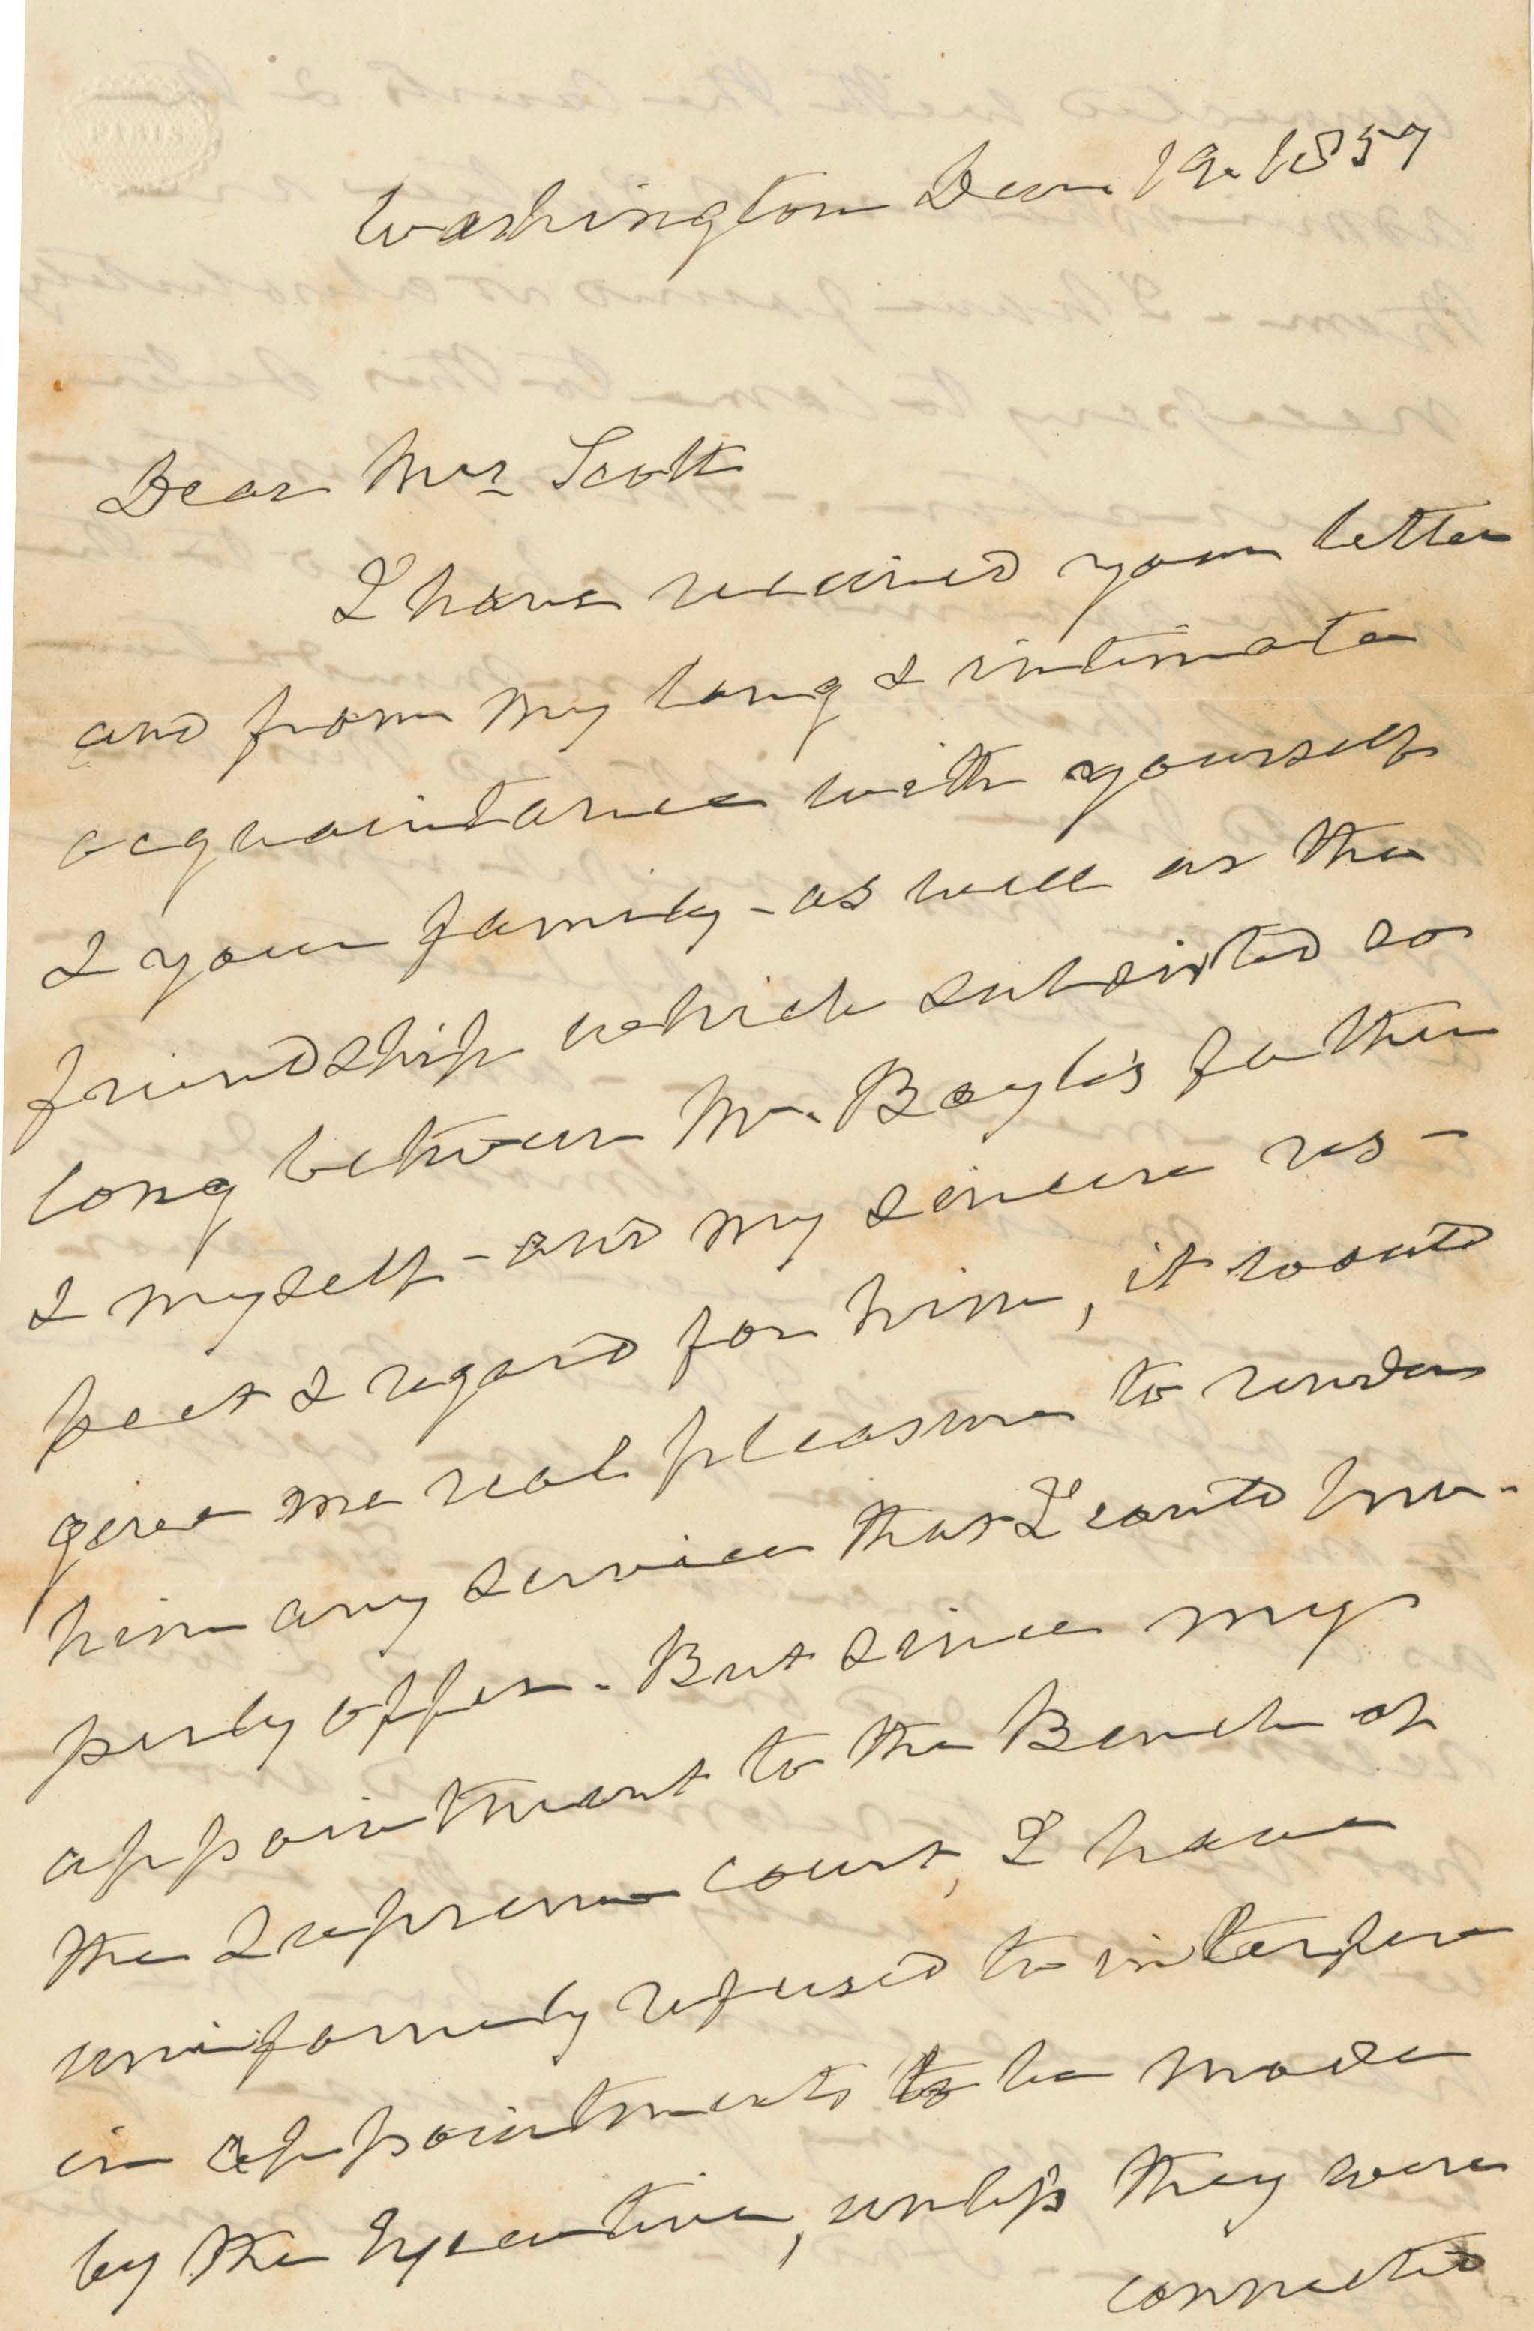 PARIS
Washington Decr. 19. 1857
Dear Mrs Scott
I have received your letter
and from my long & intimate
acquaintance with yourself
& your family - as well as the
friendship which subsisted so
long between Mr. Boyle's father
& myself - and my sincere res-
pect & regard for him, it would
give me real pleasure to render
him any service that I could pro-
perly offer. But since my
appointment to the Bench of
the Supreme Court, I have
uniformly refused to interfere
in appointments to be made
by the Executive, unless they were
connected